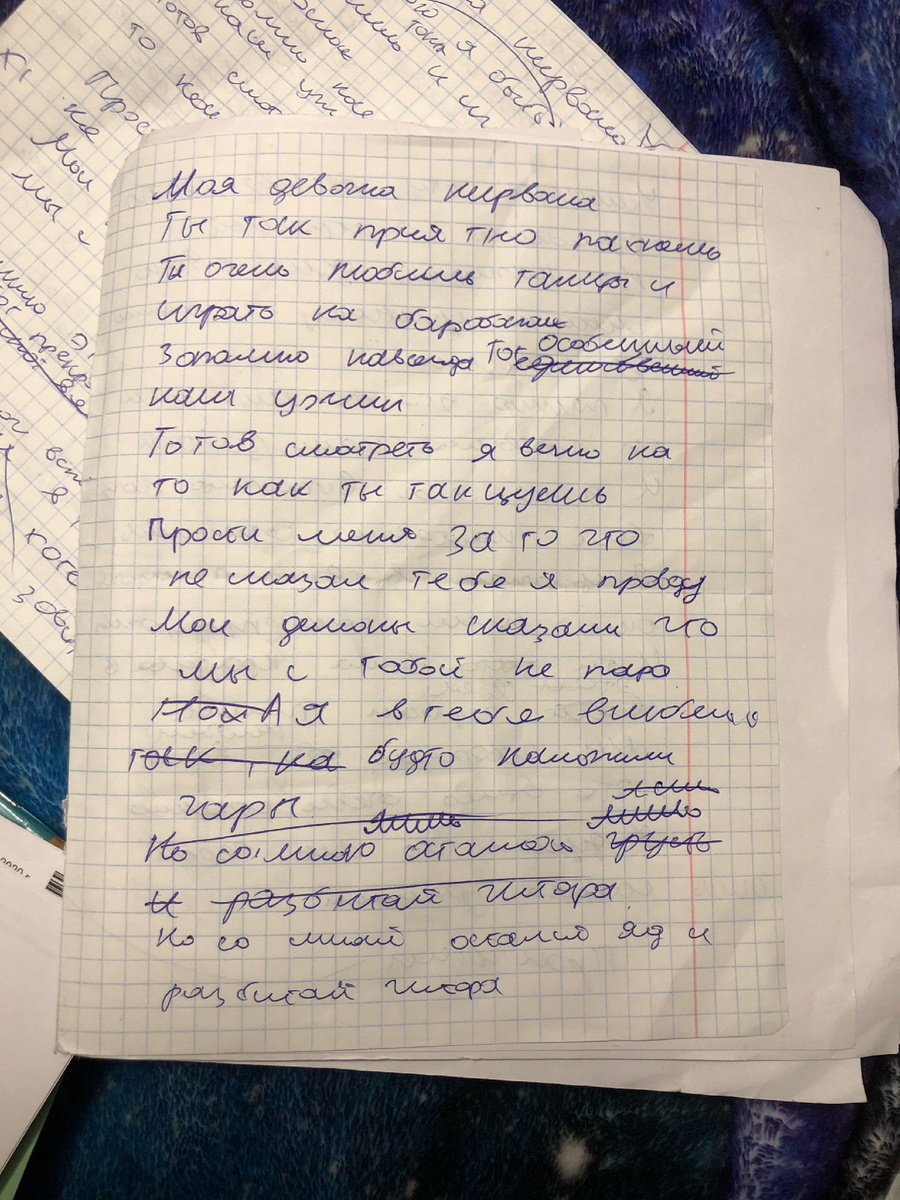 Моя девочка нирвана
Ты так приятно пахнешь
Ты очень любишь танцы и
играть на барабане
Запомню навсегда Тот особенный единственный
наш ужин
Готов смотреть я вечно на
то как ты танцуешь
Прости меня за то что
не сказал тебе я правду
Мои демоны сказали что
мы с тобой не пара
А я в тебя влюблен
так, ка будто наложили
чары
лишь лишь
Но со мною остался грусть
и разбитая гитара
Но со мной остался яд и
разбитая гитара
нирвана
я быть
Прос
не
Мои
мы с
то как